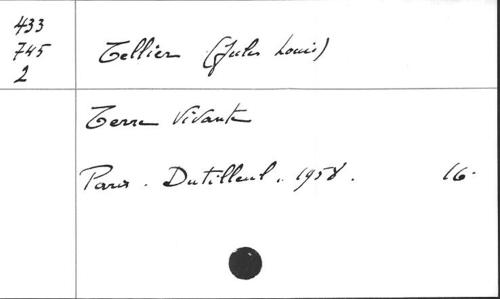 433
745
2
Tellier (Jules Louis)
Terre Vivante
Paris. Dutilleul. 1958. 16.